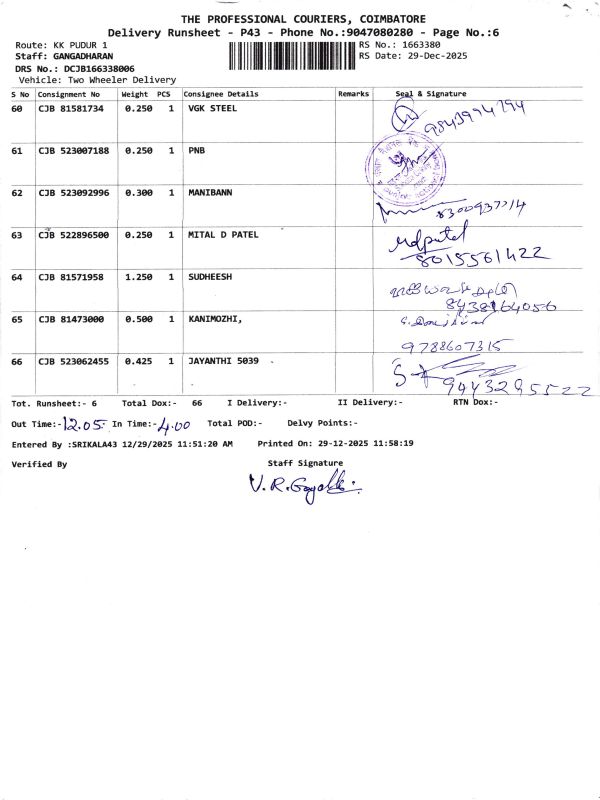 THE PROFESSIONAL COURIERS, COIMBATORE
Delivery Runsheet - P43 - Phone No.:9047080280 - Page No.:6
Route: KK PUDUR 1 RS No.: 1663380
Staff: GANGADHARAN RS Date: 29-Dec-2025
DRS No.: DCJB166338006
Vehicle: Two Wheeler Delivery
S No Consignment No Weight PCS Consignee Details Remarks Seal & Signature
60 CJB 81581734 0.250 1 VGK STEEL 9843994794
61 CJB 523007188 0.250 1 PNB
62 CJB 523092996 0.300 1 MANIBANN 8300937014
63 CJB 522896500 0.250 1 MITAL D PATEL mdpatel
8015561422
64 CJB 81571958 1.250 1 SUDHEESH
8438164056
65 CJB 81473000 0.500 1 KANIMOZHI,
9788607315
66 CJB 523062455 0.425 1 JAYANTHI 5039
9443295522
Tot. Runsheet:- 6 Total Dox:- 66 I Delivery:- II Delivery:- RTN Dox:-
Out Time:- 12.05 In Time:- 4.00 Total POD:- Delvy Points:-
Entered By :SRIKALA43 12/29/2025 11:51:20 AM Printed On: 29-12-2025 11:58:19
Verified By Staff Signature